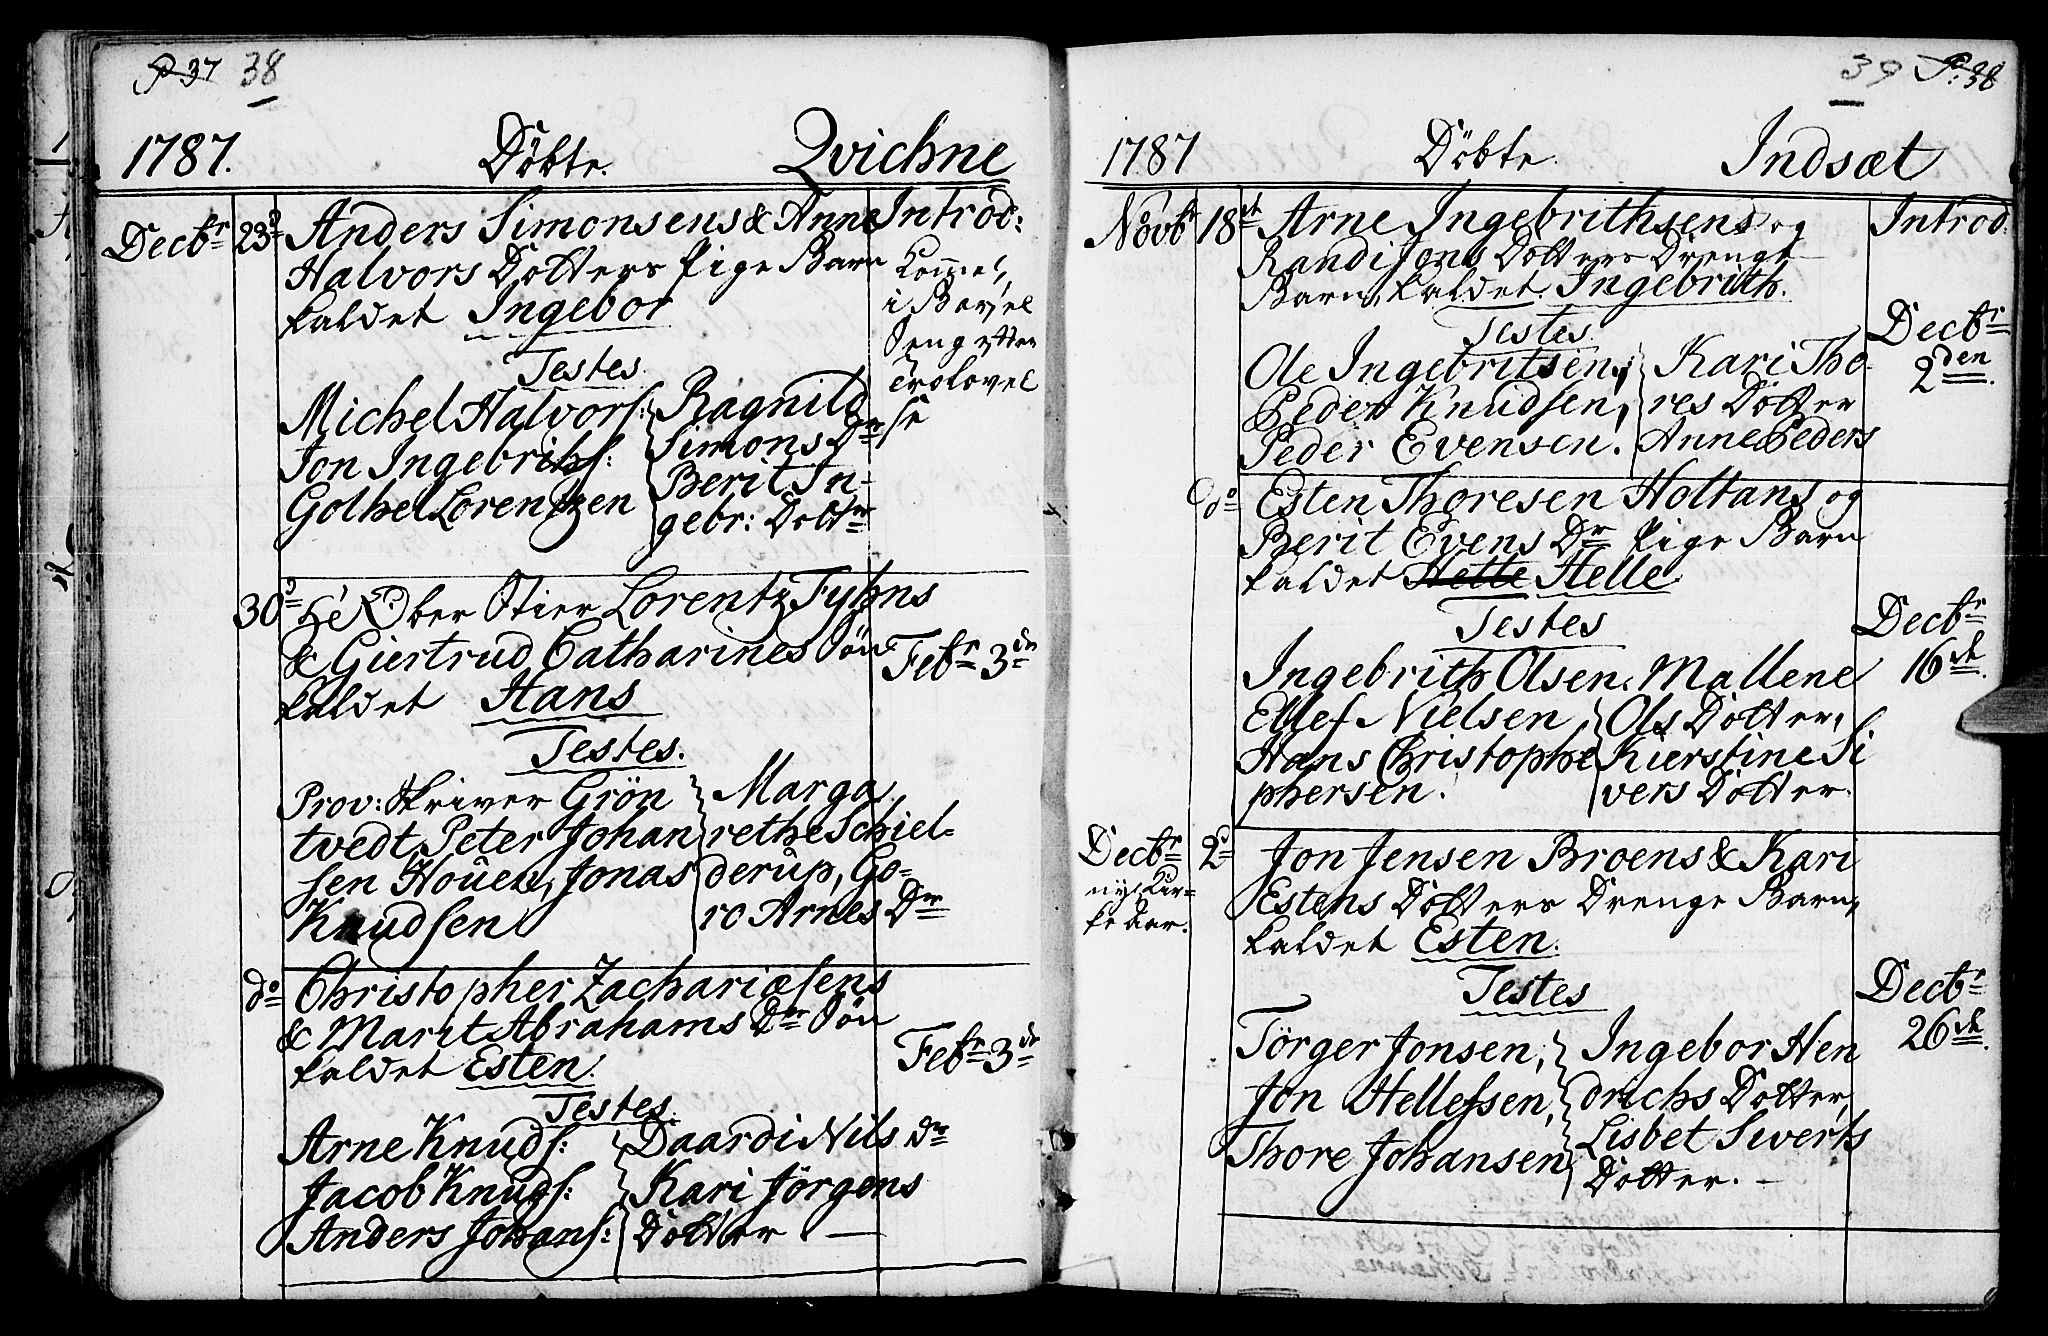 P 37 38
1787. Döbte. Qvichne
Decbr 23d Anders Simonsens & Anne
Halvors Dotters Pige Barn
kaldet Ingebor
Testes
Michel Halvors:
Jon Ingebrihs:
Gothel Lorentzen
Ragnild
Simons Dr
Berit In-
gebr: Dottr
Introd:
i Barsel
Seng ytter
Trolovel
se
30d Hr Ober Stier Lorentz Fyhns
& Giertrud Catharines Sön
kaldet Hans
Testes.
Prov: Skriver Grön
tvedt Peter Johan
sen Houen, Jonas
Knudsen
Marga
rethe Schiel-
derup, Go-
ro Arnes Dr
Febr 3de
do Christopher Zachariæsens
& Marit Abrahams Dr Sön
kaldet Esten.
Testes.
Arne Knuds:
Jacob Knuds:
Anders Johans:
Daardi Nils dr
Kari Jörgens
Dotter —
Febr 3de
39 P: 38
1787 Döbte. Indsæt
Novbr 18de Arne Ingebrithsens og
Randi Jons Dotters Drenge
Barn, kaldet Ingebrith.
Testes.
Ole Ingebritsen,
Peder Knudsen,
Peder Evensen.
Kari Tho-
res Dotter
Anne Peders
Introd:
Decbr
2den.
do Esten Thoresen Holtans og
Berit Evens Dr Pige Barn
kaldet Helle Helle
Testes
Ingebrith Olsen.
Ellef Nielsen
Hans Christophe
phersen.
Mallene
Ols Dotter,
Kierstine Si
vers Dotter.
Decbr
16de.
Decbr 2d
nyt Kir-
ke Aar.
Jon Jensen Broens & Kari
Estens Dotters Drenge Barn,
kaldet Esten.
Testes
Törger Jonsen,
Jon Hellefsen,
Thore Johansen
Ingebor Hen
drichs Dotter,
Lisbet Siverts
Dotter. —
Decbr
26de.